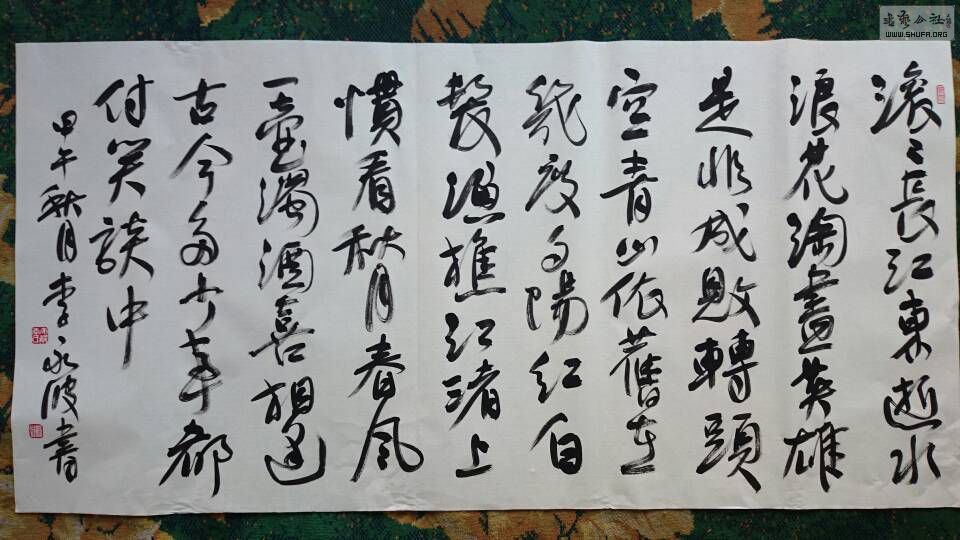 滚々長江東逝水
浪花淘盡英雄
是非成敗轉頭
空青山依舊在
幾度夕陽紅白
髮漁樵江渚上
慣看秋月春風
一壺濁酒喜相逢
古今多少事都
付笑談中
甲午秋月李永波書
書藝公社
WWW.SHUFA.ORG